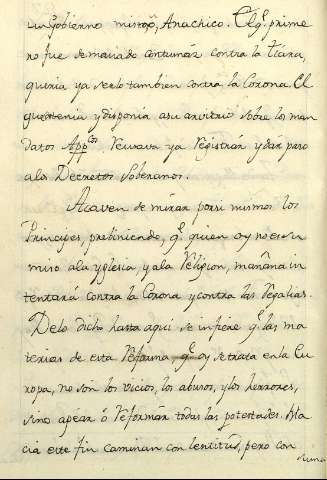 un Gobierno mistoqe, Anachico. El qe prime
ro fue demaciado contumáz contra la Tiara,
quiria ya serlo tambien contra la Corona. El
que tenia y disponía a su arvitrio sobre los man
datos Appcos reusava ya registrár y dár paso
a los Decretos Soberanos.
Acaven de mirar porsi mismos los
Principes, prebiniendo, qe quien oy no es su
miso ala yglesia, y ala Religion, mañana in
tentará contra la Corona y contra las Regalias.
Delo dicho hasta aqui se infiere qe las ma
terias de esta Reforma qe oy se trata en la Eu
ropa, no son los vicios, los abusos, y los herrores,
sino apear ó reformar todas las potestades. Ha
cia este fin caminan con lentitud, pero con
suma